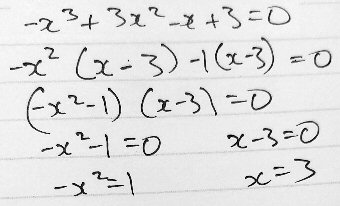 -x³+3x²-x+3=0
-x²(x-3)-1(x-3)=0
(-x²-1)(x-3)=0
-x²-1=0 x-3=0
-x²=1 x=3